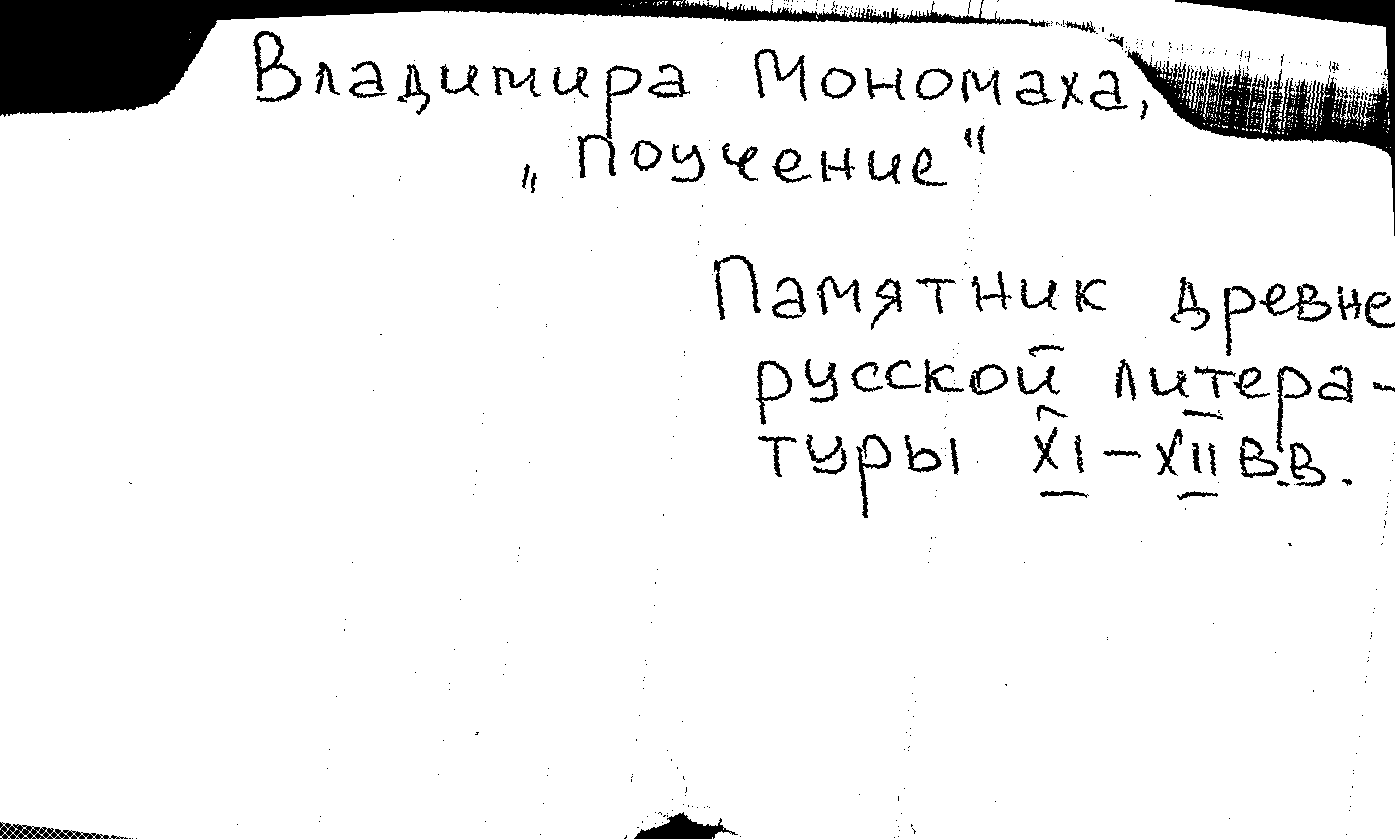 Владимира Мономаха,
„Поучение“
Памятник древне
русской литера-
туры XI–XII в.в.